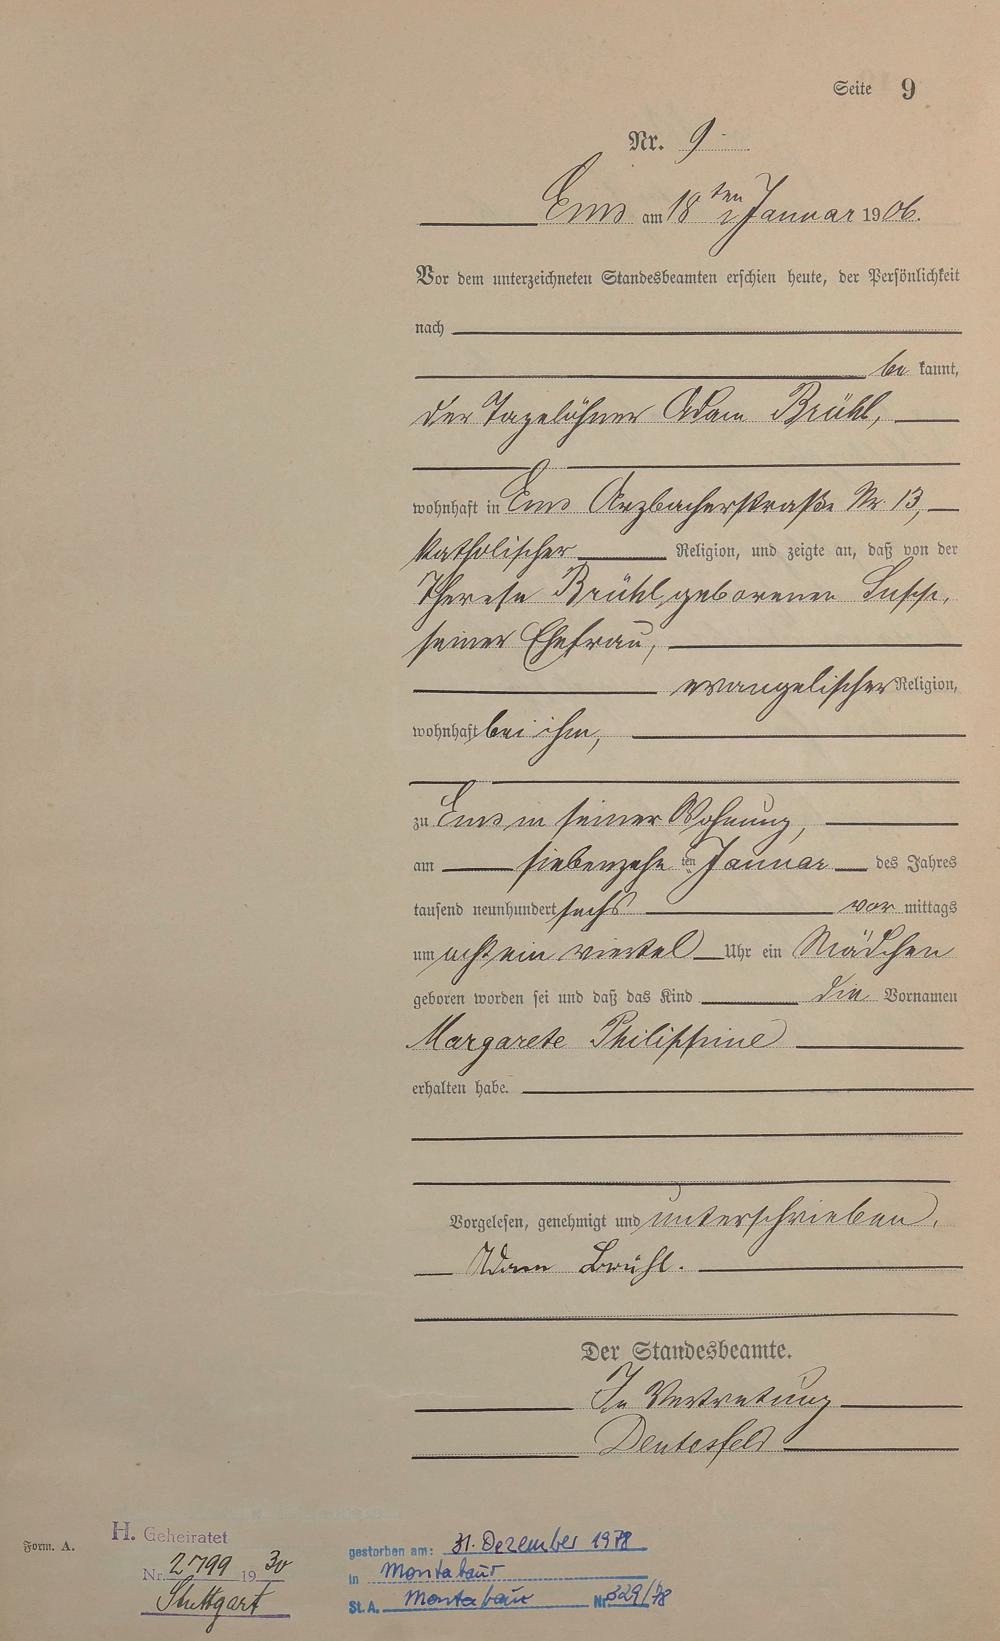 Seite 9
Nr. 9
Ems am 18ten Januar 1906.
Vor dem unterzeichneten Standesbeamten erschien heute, der Persönlichkeit
nach
be kannt,
der Tagelöhner Adam Brühl,
wohnhaft in Ems Arzbacherstraße Nr. 13,
katholischer Religion, und zeigte an, daß von der
Therese Brühl, geborenen
seiner Ehefrau,
evangelischer Religion,
wohnhaft bei ihm,
zu Ems in seiner Wohnung,
am siebenzehnten Januar des Jahres
tausend neunhundert sechs vor mittags
um acht ein viertel Uhr ein Mädchen
geboren worden sei und daß das Kind die Vornamen
Margarete Philippine
erhalten habe.
Vorgelesen, genehmigt und unterschrieben.
Adam Brühl.
Der Standesbeamte.
In Vertretung
Form. A.
H. Geheiratet
Nr. 2799 1930
Stuttgart
gestorben am: 31. Dezember 1978
in Montabaur
St. A. Montabaur Nr. 329/78